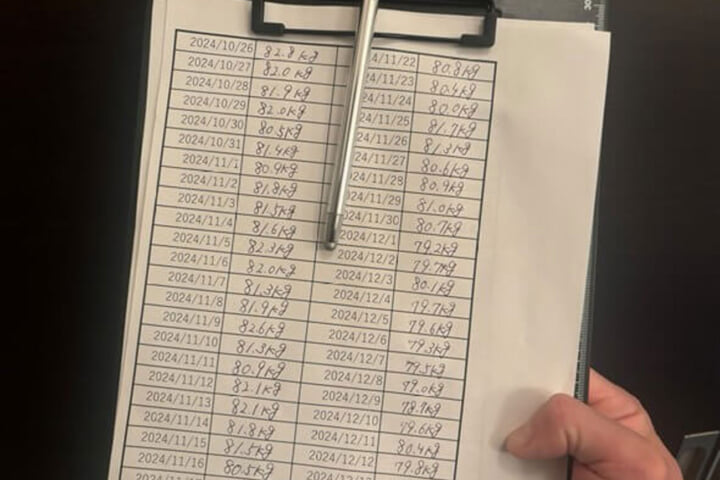 2024/10/26 82.8kg 4/11/22 80.8kg
2024/10/27 82.0kg 4/11/23 80.4kg
2024/10/28 81.9kg /11/24 80.0kg
2024/10/29 82.0kg /11/25 81.7kg
2024/10/30 80.5kg /11/26 81.3kg
2024/10/31 81.4kg 24/11/27 80.6kg
2024/11/1 80.9kg 24/11/28 80.9kg
2024/11/2 81.8kg /11/29 81.0kg
2024/11/3 81.5kg /11/30 80.7kg
2024/11/4 81.6kg 2024/12/1 79.2kg
2024/11/5 82.3kg 2024/12/2 79.7kg
2024/11/6 82.0kg 2024/12/3 80.1kg
2024/11/7 81.3kg 2024/12/4 79.7kg
2024/11/8 81.9kg 2024/12/5 79.6kg
2024/11/9 82.6kg 2024/12/6 79.3kg
2024/11/10 81.3kg 2024/12/7 79.5kg
2024/11/11 80.9kg 2024/12/8 79.0kg
2024/11/12 82.1kg 2024/12/9 78.9kg
2024/11/13 82.1kg 2024/12/10 79.6kg
2024/11/14 81.8kg 2024/12/11 80.4kg
2024/11/15 81.5kg 2024/12/12 79.8kg
2024/11/16 80.5kg